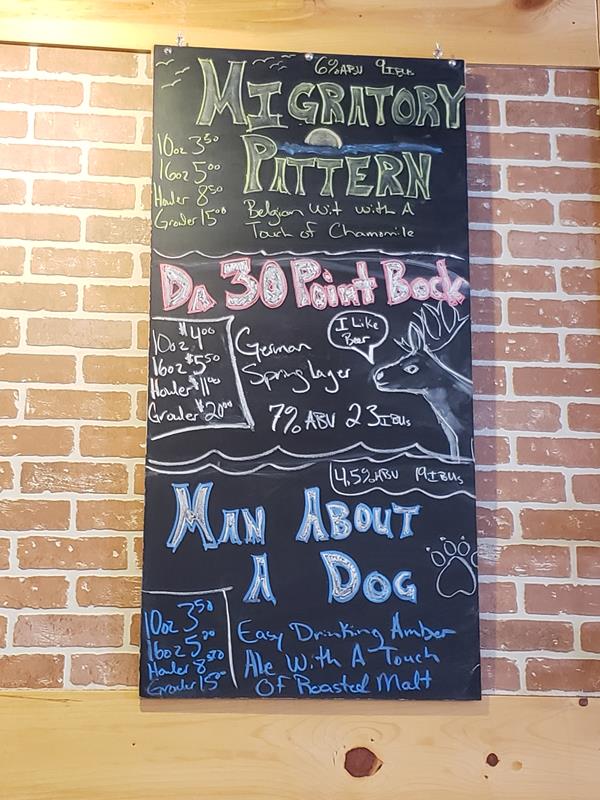 6% ABV 9 IBUs
MIGRATORY
PATTERN
10oz 3.50
16oz 5.00
Howler 8.50
Growler 15.00
Belgian Wit with A
Touch of Chamomile
Da 30 Point Bock
10oz $4.00
16oz $5.50
Howler $11.00
Growler $20.00
German
Spring Lager
I Like
Beer
7% ABV 23 IBUs
4.5% ABV 19 IBUs
MAN ABOUT
A DOG
10oz 3.50
16oz 5.00
Howler 8.50
Growler 15.00
Easy Drinking Amber
Ale With A Touch
Of Roasted Malt